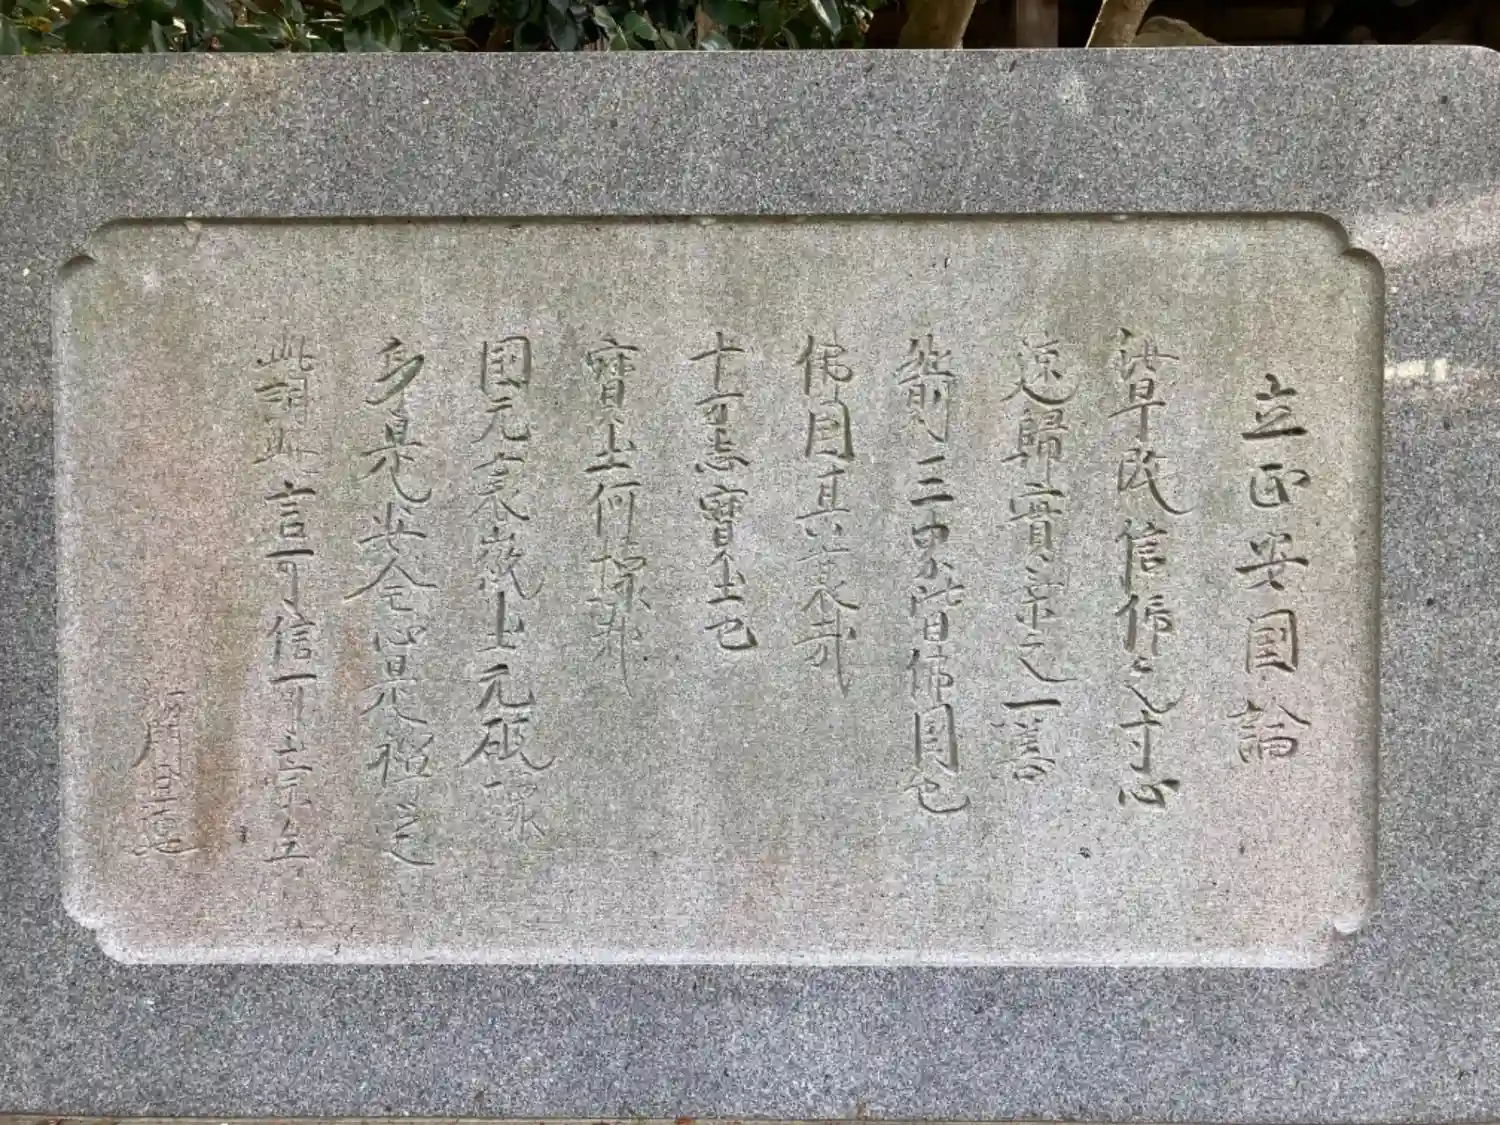 立正安国論
汝早改信仰之寸心
速歸實乗之一善
然則三界皆佛国也
佛国其衰哉
十方悉寶土也
寶土何壊哉
国无衰微土无破壊
身是安全心是禅定
此詞此言可信可崇矣
沙門日蓮